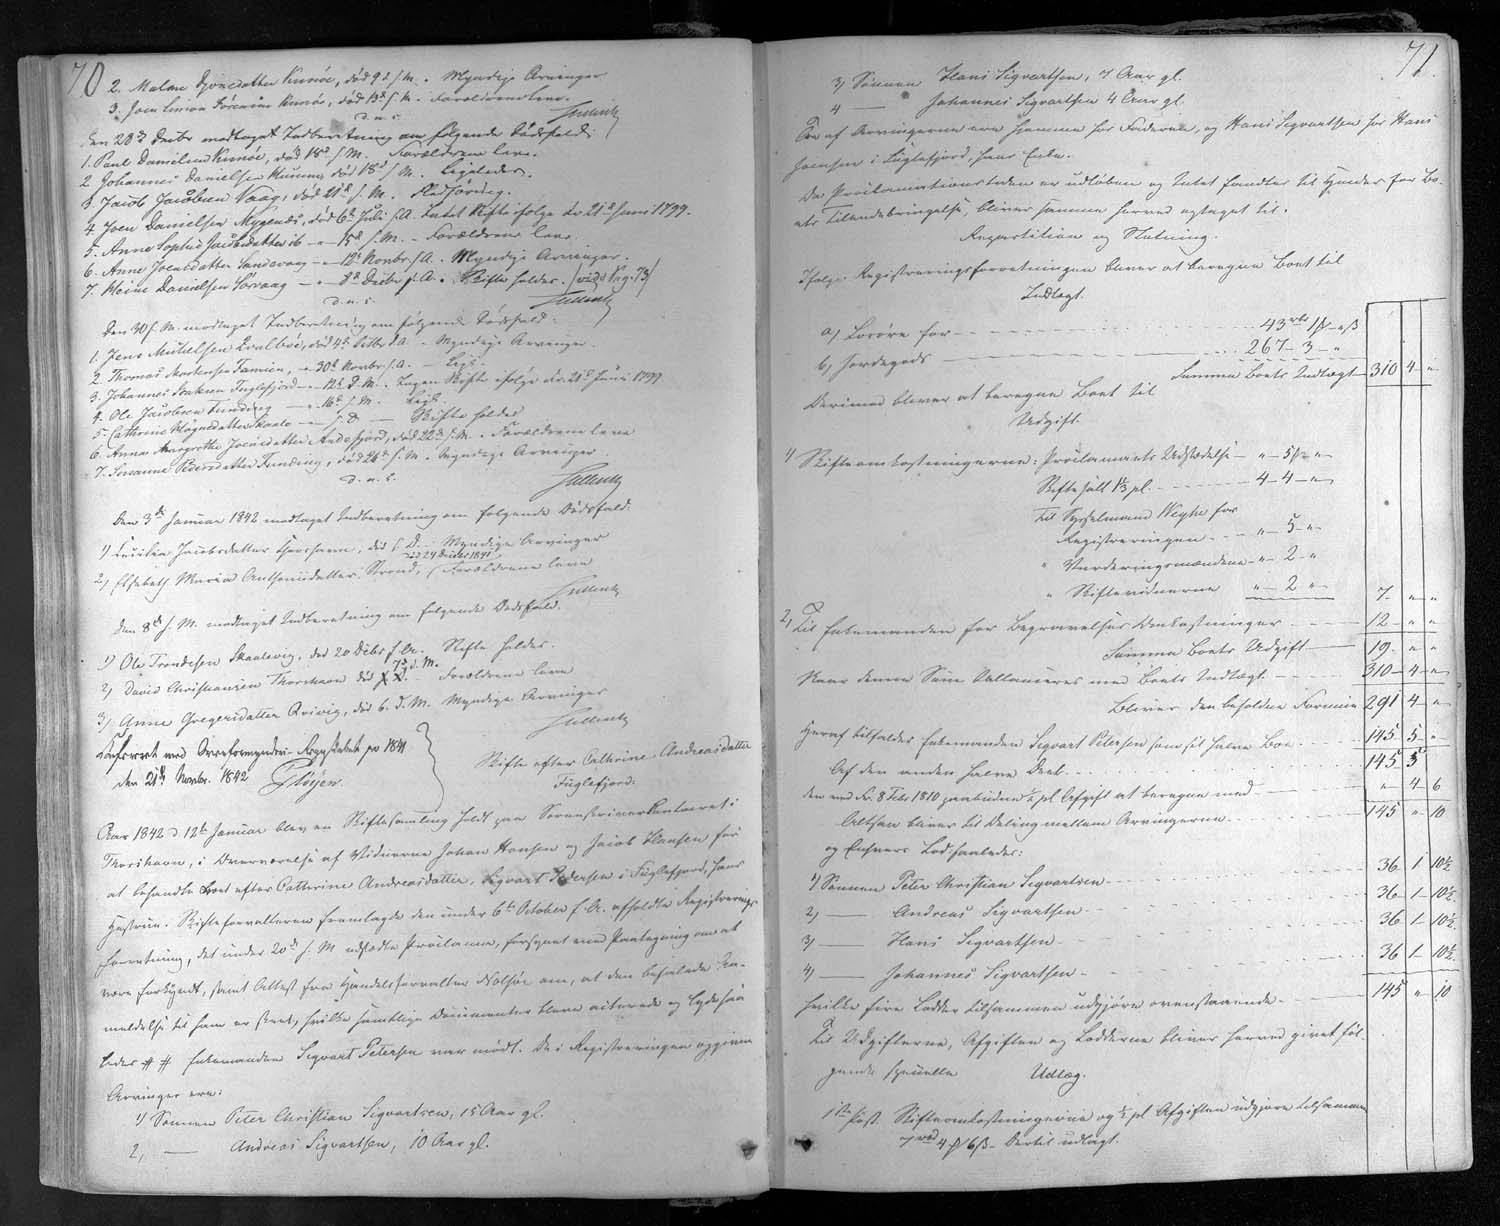 70
2. Malene Djonedatter Kunöe, död 9d s. M. - Myndige Arvinger
3. Joen Simon Sörensen Kunöe, död 13d s. M. - Forældrene leve.
d. u. s.
Den 20d Decbr modtaget Indberetning om følgende Dödsfald:
1. Poul Danielsen Kunöe, död 18d s. M. Forældrene leve.
2. Johannes Danielsen död 18d s. M. - Ligeledes.
3. Jacob Jacobsen Vaag, död 21d s. M.
4. Joen Danielsen Myggenæs, död 6d Juli s. A. Intet Skifte ifölge Fr 21d Juni 1799.
5. Anne Sophie Jacobsdatter ib - 15d s. M. - Forældrene leve
6. Anne Joensdatter Sandevaag - 12d Novbr. s. A. Myndige Arvinger.
7. Heine Danielsen Sörvaag - 8d Decbr s. A. - Skifte holdes. (vide Pag. 73)
d. u. s.
Den 30 s. M. modtaget Indberetning om fölgende Dödsfald:
1. Jens Michelsen Qvalböe, död 4d s. A. - Myndige Arvinger.
2. Thomas Mortensen Famien, - 30d Novbr. s. A. - Lig.
3. Johannes Isaksen Fuglefjord - 12d D. M. - Ingen Skifte ifölge Fr. 21d Juni 1799.
4. Ole Jacobsen Funding - 16d s. M. Lig.
5. Cathrine Magnedatter Skaale - s. D - Skifte holdes
6. Anna Margrethe Joensdatter Andefjord, död 22d s. M. - Forældrene leve
7. Susanne Pedersdatter Funding, död 26d s. M. - Myndige Arvinger.
d. u. s.
Den 3d Januar 1842 modtaget Indberetning om fölgende Dödsfald:
1) Cecilia Jacobsdatter Thorshavn, död s. D. - Myndige Arvinger
2) Elsebeth Maria Anthonisdatter Strond, död 24 Decbr 1841 Forældrene leve
Den 8d s. M. modtaget Indberetning om fölgende Dödsfald.
1) Ole Trondesen Skaalevig, död 20 Decbr s. A. Skifte holdes.
2) David Christiansen Thorshavn död 7d d. M. Forældrene leve
3) Anne Gregersdatter Qvivig, död 6. d. M. Myndige Arvinger
Confereret med Overformynderi-Regnskabet for 1841
den 21d Novbr. 1842
Skifte efter Cathrine Andreasdatter
Fuglefjord:
Aar 1842 d 12te Januar blev en Skiftesamling holdt paa Sorenskrivercontoiret i
Thorshavn, i Overværelse af Vidnerne Johan Hansen og Jacob Hansen for
at behandle Boet efter Cathrine Andreasdatter, Sigvart Petersen i Fuglefjord, hans
Hustrue. Skifteforvalteren fremlagde den under 6te October s. A. afholdte Registrerings
forretning, det under 20d s. M. udstædte Proclama, forsynet med Paategning om at
være forkyndt, samt Attest fra Handelsforvalter Nolsöe om, at den befalede An-
meldelse til ham er skeet, hvilke samtlige Documenter bleve acterede og lyde saa
ledes # # Enkemanden Sigvart Petersen var mödt. De i Registreringen opgivne
Arvinger ere:
1) Sönnen Peter Christian Sigvartsen, 15 Aar gl.
2, — Andreas Sigvartsen, 10 Aar gl.
71.
3) Sönnen Hans Sigvartsen, 7 Aar gl.
4 — Johannes Sigvartsen 4 Aar gl.
Tre af Arvingerne ere hjemme hos Faderen, og Hans Sigvartsen hos Hans
Joensen i Fuglefjord, hans Enke.
Da Proclamationstiden er udløben og Intet fandtes til Hinder for Bo-
ets Tilendebringelse, bliver samme herved optaget til.
Repartition og Slutning.
Ifølge Registreringsforretningen bliver at beregne Boet til
Indtægt.
a) Lösöre for - 43rbd 1 β - β
b) Jordegods - 267 - 3 - "
Summa Boets Indtægt 310 4 "
Derimod bliver at beregne Boet til
Udgift.
1) Skifteomkostningerne: Proclamaets Udstædelse - " - 5 β - "
Skiftesalt 1⅓ pC. - 4 - 4 - "
til Sysselmand Weyhe for
Registreringen - " - 5 - "
" Vurderingsmændene - " - 2 - "
" Skiftevidnerne " - 2 - " 7 - " "
2, Til Enkemanden for Begravelses Omkostninger - 12 - " "
Summa Boets Udgift 19 - " "
Naar denne Sum ballanceres med Boets Indtægt - 310 - 4 - "
Bliver den beholdne Formue 291 4 - "
Heraf tilfalder Enkemanden Sigvart Petersen som sit halve Boe 145 5 "
Af den anden halve Deel 145 - 5
den ved Fr. 8 Febr 1810 paabudne ½ pC Afgift at beregne med " 4 - 6
Altsaa bliver til Deling mellem Arvingerne 145 " 10
og Enhvers Lod saaledes:
1) Sönnen Peter Christian Sigvartsen 36 1 10½
2) — Andreas Sigvartsen 36 - 1 - 10½
3) — Hans Sigvartsen 36 - 1 - 10½
4) — Johannes Sigvartsen 36 1 - 10½
hvilke fire Lodder tilsammen udgjöre ovenstaaende 145 " 10
Til Udgifterne, Afgiften og Lodderne bliver herved givet föl-
gende specielle Udlæg.
1ste Post. Skifteomkostningerne og ½ pC Afgiften udgjöre tilsammen
7rbd 4 β 6 β - Dertil udlagt.